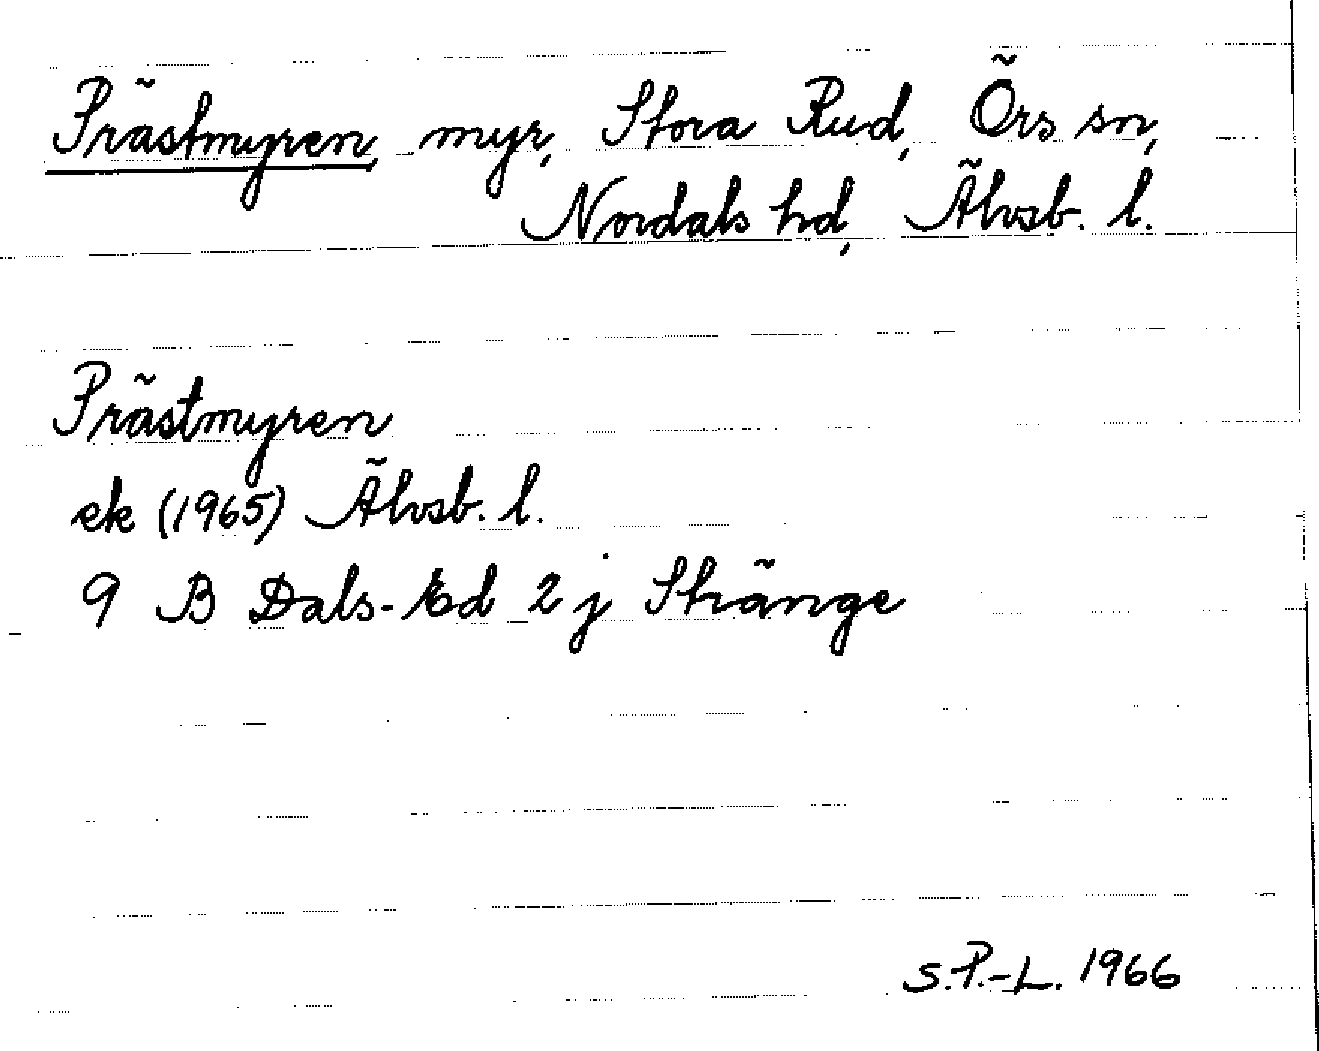 Prästmyren, myr, Stora Rud, Örs sn,
Nordals hd, Älvsb. l.
Prästmyren
ek (1965) Älvsb. l.
9 B Dals-Ed 2 j Stränge
S.P.-L. 1966